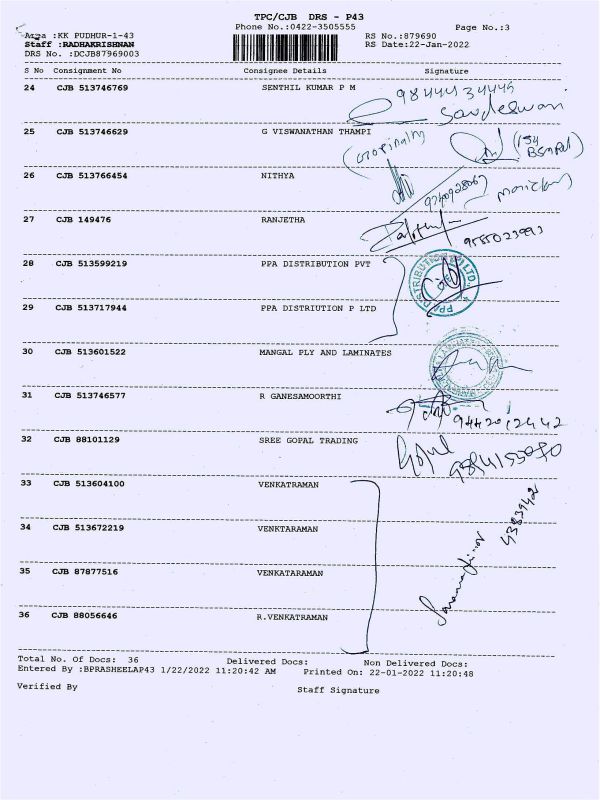 TPC/CJB DRS - P43
Phone No.:0422-3505555 Page No.:3
Area :KK PUDHUR-1-43 RS No.:879690
Staff :RADHAKRISHNAN RS Date:22-Jan-2022
DRS No. :DCJB87969003
S No Consignment No Consignee Details Signature
24 CJB 513746769 SENTHIL KUMAR P M
25 CJB 513746629 G VISWANATHAN THAMPI
26 CJB 513766454 NITHYA
27 CJB 149476 RANJETHA
28 CJB 513599219 PPA DISTRIBUTION PVT
29 CJB 513717944 PPA DISTRIUTION P LTD
30 CJB 513601522 MANGAL PLY AND LAMINATES
31 CJB 513746577 R GANESAMOORTHI
9442012442
32 CJB 88101129 SREE GOPAL TRADING Gopal
33 CJB 513604100 VENKATRAMAN
4383942
34 CJB 513672219 VENKTARAMAN
35 CJB 87877516 VENKATARAMAN
36 CJB 88056646 R.VENKATRAMAN
Total No. Of Docs: 36 Delivered Docs: Non Delivered Docs:
Entered By :BPRASHEELAP43 1/22/2022 11:20:42 AM Printed On: 22-01-2022 11:20:48
Verified By Staff Signature